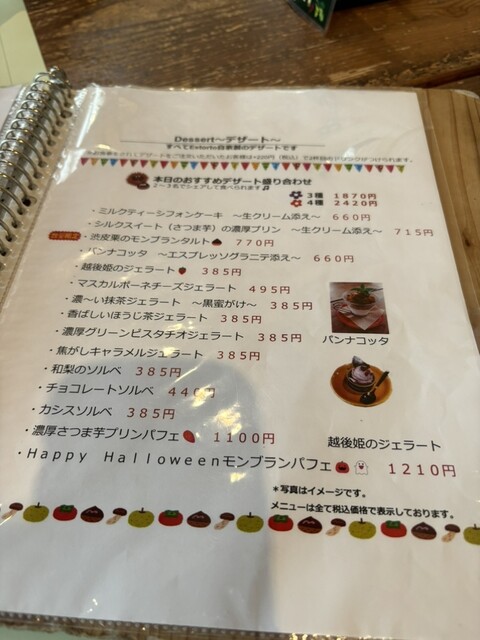 Dessert～デザート～
すべてEstorto自家製のデザートです
デザートをご注文いただいたお客様は+220円（税込）で2杯目のドリンクがつけられます。
本日のおすすめデザート盛り合わせ
2～3名でシェアして食べられます♫
3種 1870円
4種 2420円
・ミルクティーシフォンケーキ ～生クリーム添え～ 660円
・シルクスイート（さつま芋）の濃厚プリン ～生クリーム添え～ 715円
・渋皮栗のモンブランタルト 770円
・パンナコッタ ～エスプレッソグラニテ添え～ 660円
・越後姫のジェラート 385円
・マスカルポーネチーズジェラート 495円
・濃～い抹茶ジェラート ～黒蜜がけ～ 385円
・香ばしいほうじ茶ジェラート 385円
・濃厚グリーンピスタチオジェラート 385円
・焦がしキャラメルジェラート 385円
・和梨のソルベ 385円
・チョコレートソルベ 440円
・カシスソルベ 385円
・濃厚さつま芋プリンパフェ 1100円
・Happy Halloweenモンブランパフェ 1210円
パンナコッタ
越後姫のジェラート
＊写真はイメージです。
メニューは全て税込価格で表示しております。